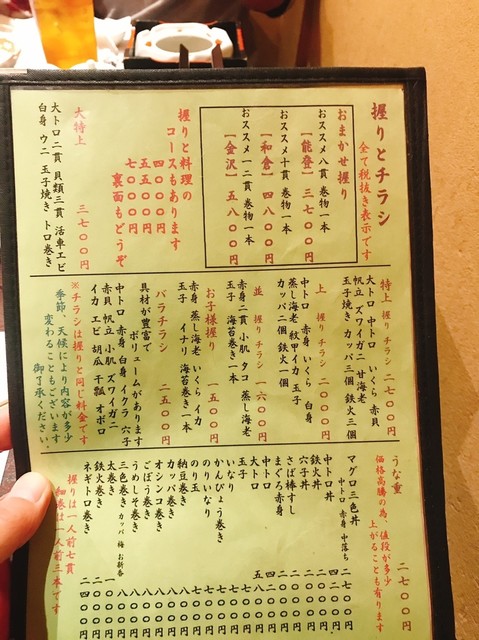 握りとチラシ
全て税抜き表示です
おまかせ握り
おススメ八貫 巻物一本
【能登】 三七〇〇円
おススメ十貫 巻物一本
【和倉】 四八〇〇円
おススメ一二貫 巻物一本
【金沢】 五八〇〇円
握りと料理の
コースもあります
四〇〇〇円
五五〇〇円
七〇〇〇円
裏面もどうぞ
大特上 三七〇〇円
大トロ二貫 貝類三貫 活車エビ
白身 ウニ 玉子焼き トロ巻き
特上 握り チラシ 二七〇〇円
大トロ 中トロ いくら 赤貝
帆立 ズワイガニ 甘海老
玉子焼き カッパ三個 鉄火三個
上 握り チラシ 二〇〇〇円
中トロ 赤身 いくら 白身
蒸し海老 紋甲イカ 玉子
カッパ二個 鉄火一個
並 握り チラシ 一六〇〇円
赤身二貫 小肌 タコ 蒸し海老
玉子 海苔巻き一本
お子様握り 一五〇〇円
赤身 蒸し海老 いくら イカ
玉子 イナリ 海苔巻き一本
バラチラシ 二五〇〇円
具材が豊富で
ボリュームがあります
中トロ 赤身 白身 イクラ 穴子
赤貝 帆立 小肌 ズワイガニ
イカ エビ 胡瓜 干瓢 オボロ
※チラシは握りと同じ料金です
季節、天候により内容が多少
変わることもございます
御了承ください。
うな重 二七〇〇円
価格高騰の為、値段が多少
上がることも有ります
マグロ三色丼
中トロ 赤身 中落ち
中トロ丼
鉄火丼
穴子丼
さば棒すし
まぐろ赤身
中トロ
大トロ
玉子
いなり
かんぴょう巻き
のりいなり
のり巻き
納豆巻き
カッパ巻き
オシンコ巻き
ごぼう巻き
うめしそ巻き
三色巻き カッパ 梅 お新香
太巻き
鉄火巻き
ネギトロ巻き
握りは一人前七貫
細巻は一人前三本です